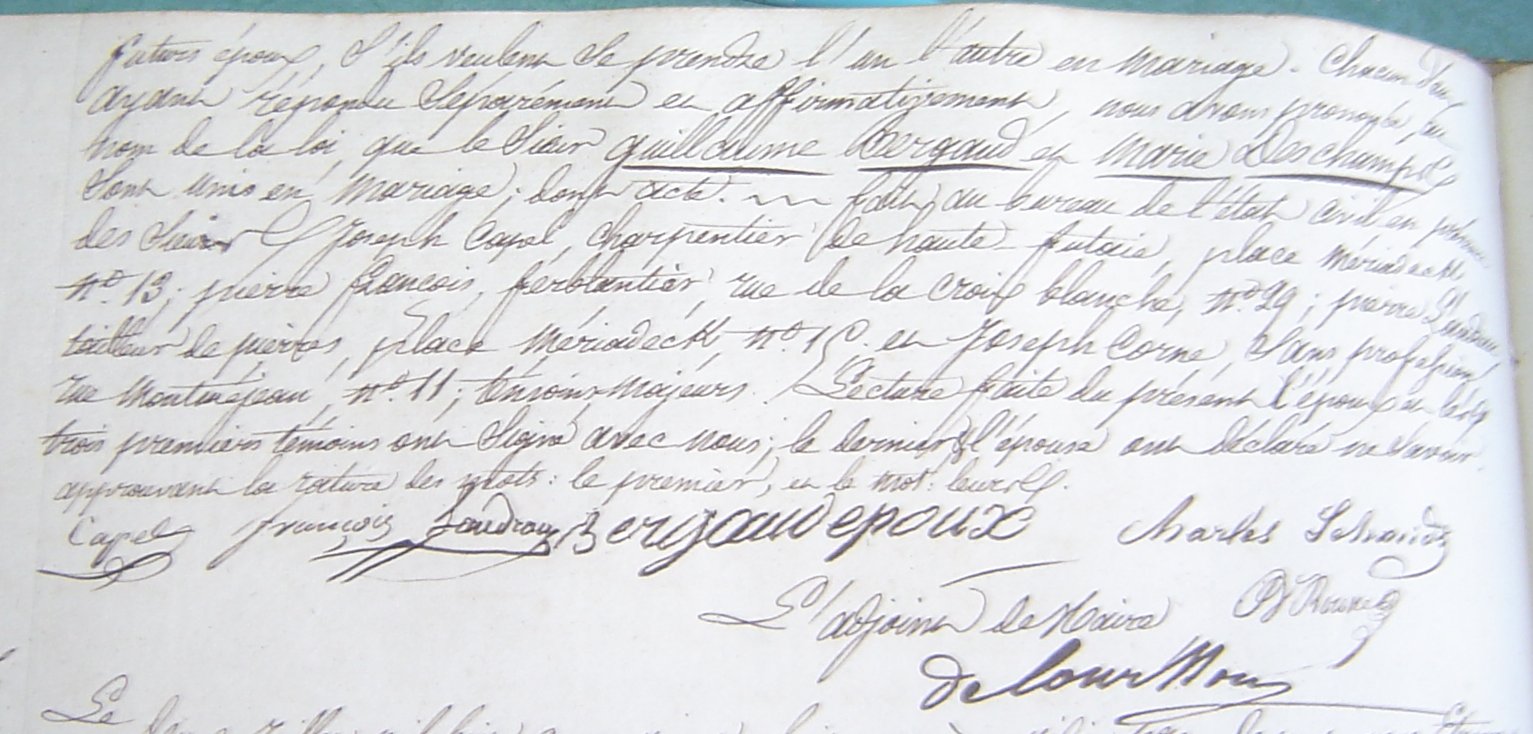 futurs époux, s'ils veulent se prendre l'un l'autre en mariage. Chacun d'eux
ayant répondu séparément et affirmativement, nous avons prononcé, au
nom de la loi, que le sieur guillaume Bergaud et Marie Deschamps
sont unis en mariage; dont acte. fait au bureau de l'état civil en présence
des sieurs Joseph Capel, charpentier de haute futaie, place Mériadeck
n.° 13; pierre françois, ferblantier, rue de la croix blanche, n.° 29; pierre
tailleur de pierres, place Mériadeck, n.° 15. et Joseph Corne, sans profession,
rue Montméjean, n.° 11; témoins majeurs. Lecture faite du présent l'époux et les
trois premiers témoins ont signé avec nous; le dernier & l'épouse ont déclaré ne savoir.
approuvant la rature des mots: le premier, et le mot: leurs.
Capel françois Bergaud epoux Charles
L'adjoint de Maire
Le